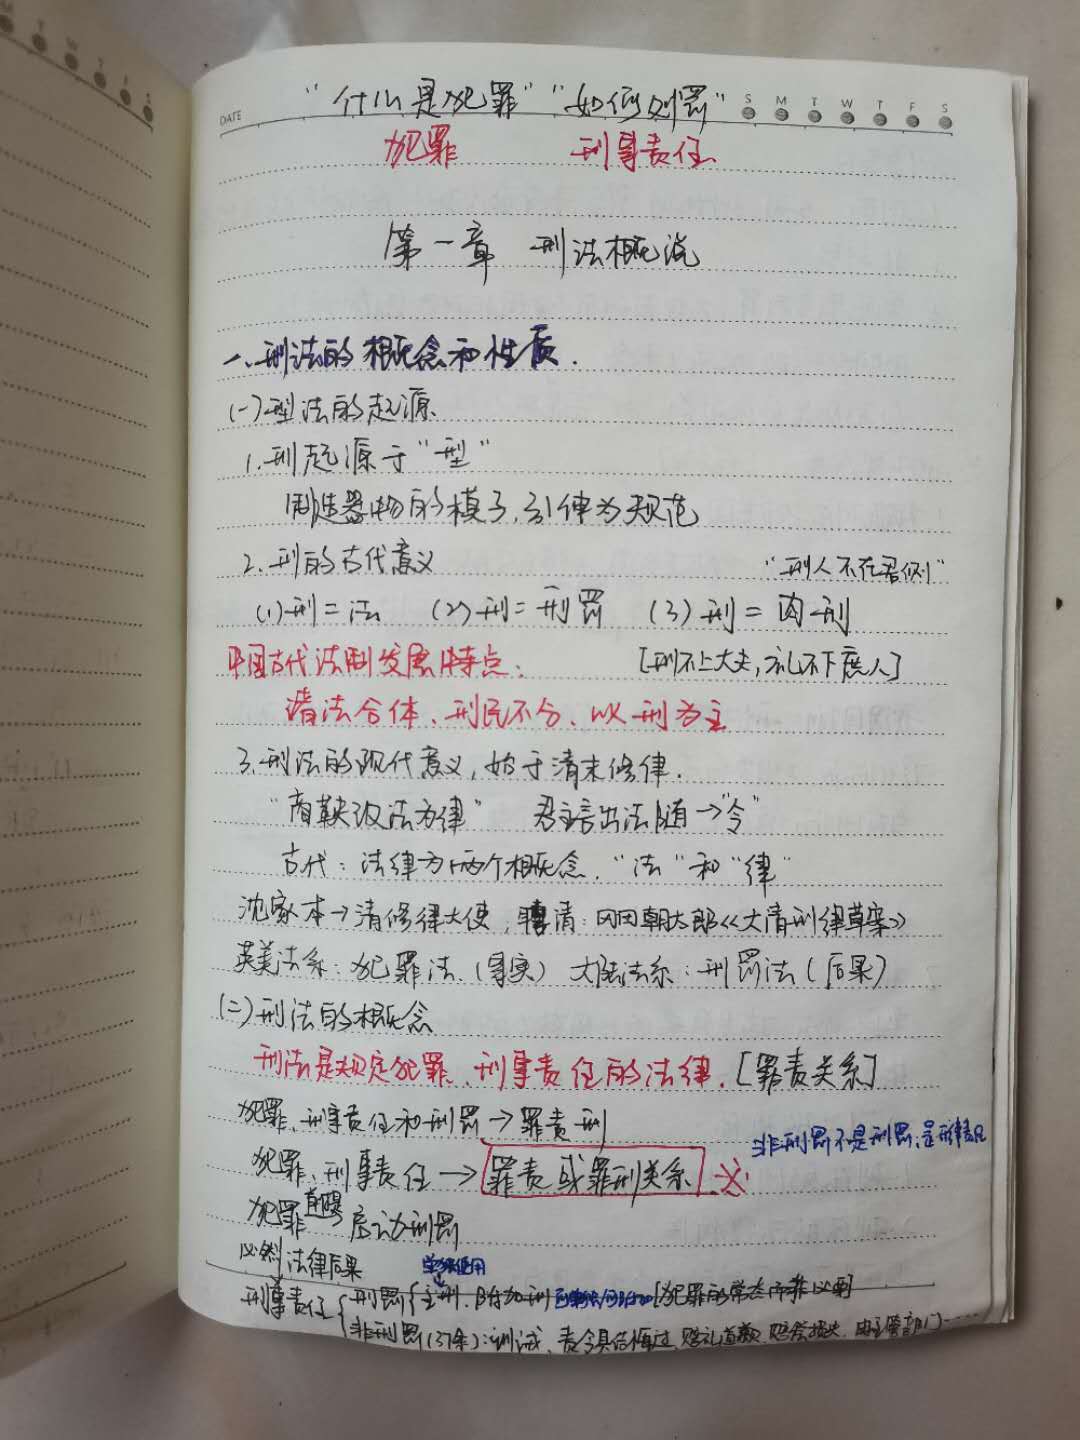 DATE
S M T W T F S
"什么是犯罪" "如何刑罚"
犯罪 刑事责任
第一章 刑法概说
一、刑法的概念和性质.
(一)型法的起源.
1.刑起源于"型"
制造器物的模子,引伸为规范
2.刑的古代意义 "刑人不在君侧"
(1)刑=法 (2)刑=刑罚 (3)刑=肉刑
中国古代法制发展特点: [刑不上大夫,礼不下庶人]
诸法合体、刑民不分、以刑为主
3.刑法的现代意义,始于清末修律.
"商鞅改法为律" 君主言出法随→"令"
古代:法律为两个概念."法"和"律"
沈家本→清修律大使,聘请:冈田朝太郎《大清刑律草案》
英美法系:犯罪法.(事实) 大陆法系:刑罚法(后果)
(二)刑法的概念
刑法是规定犯罪、刑事责任的法律.[罪责关系]
犯罪、刑事责任和刑罚→罪责刑
非刑罚不是刑罚,是
犯罪、刑事责任→罪责或罪刑关系
犯罪 启动刑罚
必然 法律后果
单独使用
刑事责任 刑罚 主刑、附加刑 [犯罪的常态而非必要]
非刑罚(37条):训诫、责令具结悔过、赔礼道歉、赔偿损失、由主管部门……